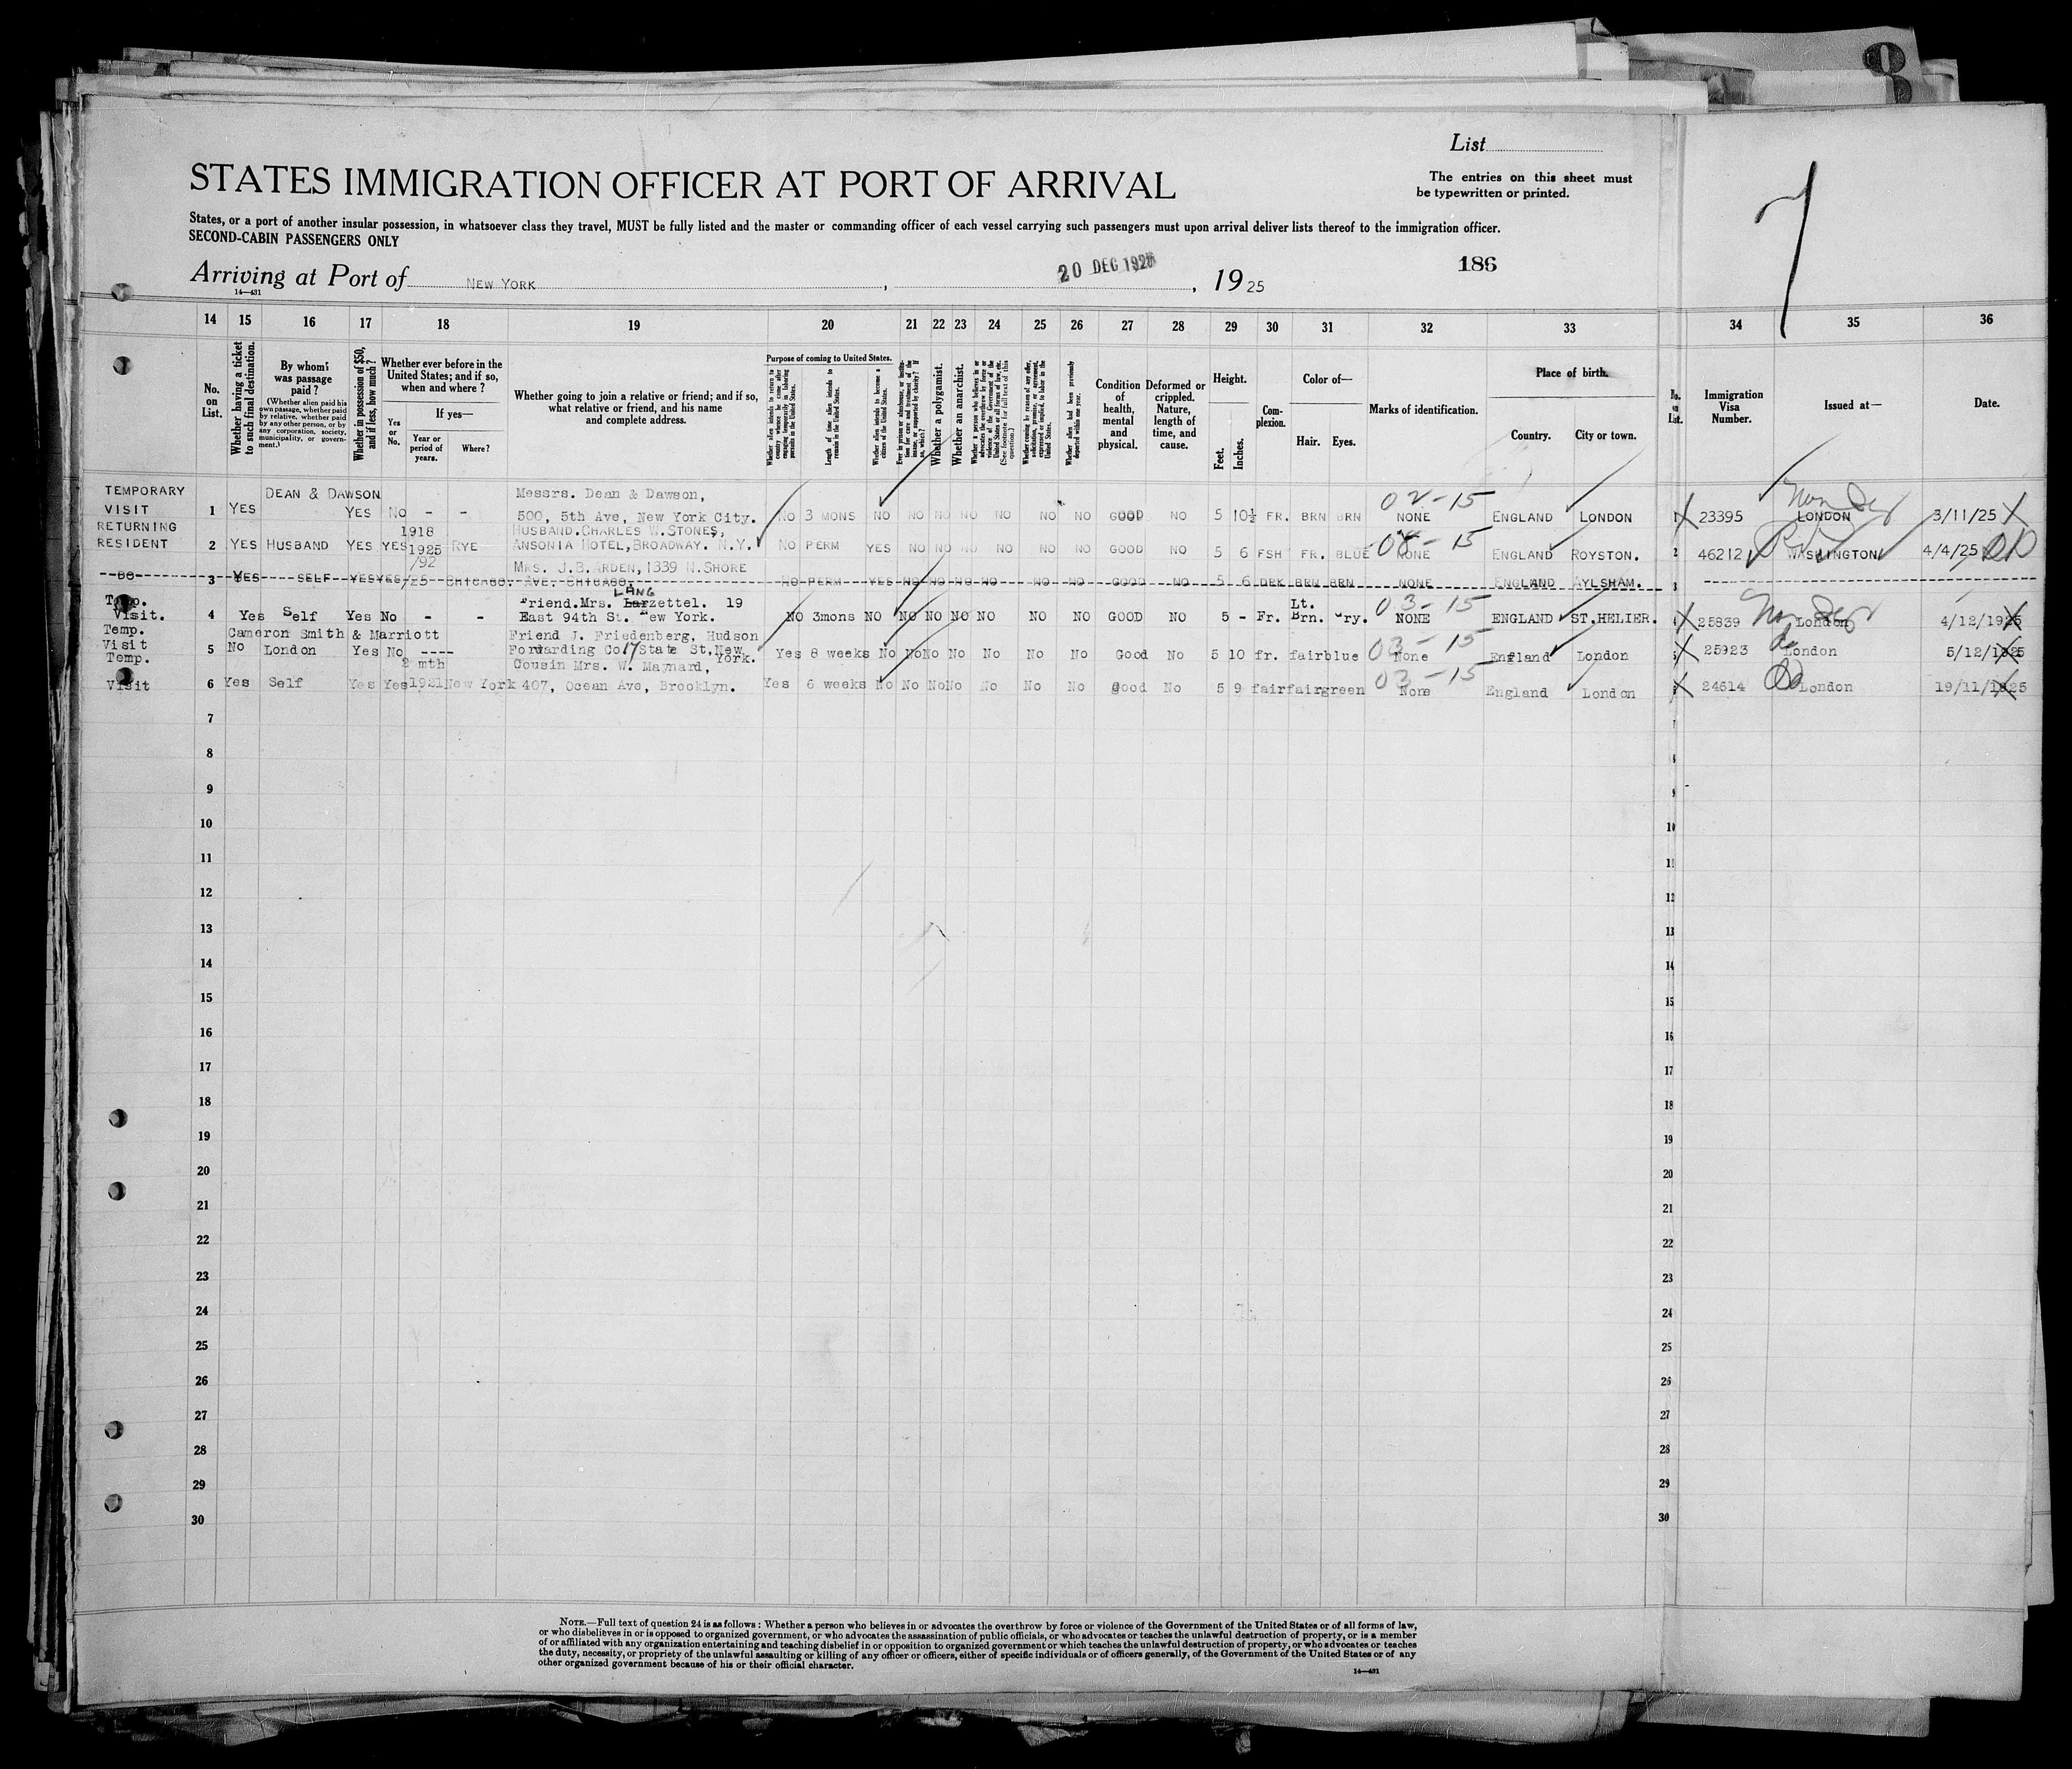 8
List
STATES IMMIGRATION OFFICER AT PORT OF ARRIVAL
The entries on this sheet must
be typewritten or printed.
States, or a port of another insular possession, in whatsoever class they travel, MUST be fully listed and the master or commanding officer of each vessel carrying such passengers must upon arrival deliver lists thereof to the immigration officer.
SECOND-CABIN PASSENGERS ONLY
Arriving at Port of NEW YORK, 20 DEC 192, 1925
186
14—431
14 15 16 17 18 19 20 21 22 23 24 25 26 27 28 29 30 31 32 33 34 35 36
No. on List.
Whether having a ticket to such final destination.
By whom was passage paid?
(Whether alien paid his own passage, whether paid by relative, whether paid by any other person, or by any corporation, society, municipality, or government.)
Whether in possession of $50, and if less, how much?
Whether ever before in the United States; and if so, when and where?
Yes or No.
If yes—
Year or period of years.
Where?
Whether going to join a relative or friend; and if so, what relative or friend, and his name and complete address.
Purpose of coming to United States.
Whether alien intends to return to country whence he came after engaging temporarily in laboring pursuits in the United States.
Length of time alien intends to remain in the United States.
Whether alien intends to become a citizen of the United States.
Ever in prison or almshouse, or institution for care and treatment of the insane, or supported by charity? If so, which?
Whether a polygamist.
Whether an anarchist.
Whether a person who believes in or advocates the overthrow by force or violence of the Government of the United States or all forms of law, etc. (See footnote for full text of this question.)
Whether coming by reason of any offer, solicitation, promise, or agreement, expressed or implied, to labor in the United States.
Whether alien had been previously deported within one year.
Condition of health, mental and physical.
Deformed or crippled. Nature, length of time, and cause.
Height.
Feet. Inches.
Complexion.
Color of—
Hair. Eyes.
Marks of identification.
Place of birth.
Country. City or town.
No. on List.
Immigration Visa Number.
Issued at—
Date.
TEMPORARY VISIT 1 YES DEAN & DAWSON YES NO - - Messrs. Dean & Dawson, 500, 5th Ave, New York City. NO 3 MONS NO NO NO NO NO NO NO GOOD NO 5 10½ FR. BRN BRN NONE 02-15 ENGLAND LONDON 1 23395 LONDON 3/11/25
RETURNING RESIDENT 2 YES HUSBAND YES YES 1918 1925 RYE HUSBAND.CHARLES W.STONES, ANSONIA HOTEL,BROADWAY. N.Y. NO PERM YES NO NO NO NO NO NO GOOD NO 5 6 FSH FR. BLUE NONE ENGLAND ROYSTON. 2 46212 WASHINGTON 4/4/25
DO 3 YES SELF YES YES /92 /25 CHICAGO. MRS. J.B.ARDEN,1339 N.SHORE AVE, CHICAGO. NO PERM YES NO NO NO NO NO NO GOOD NO 5 6 DRK BRN BRN NONE ENGLAND AYLSHAM. 3
Temp. Visit. 4 Yes Self Yes No - - Friend.Mrs. LANGzettel. 19 East 94th St. New York. NO 3mons NO NO NO NO NO NO NO GOOD NO 5 - Fr. Lt. Brn. Gry. NONE 03-15 ENGLAND ST.HELIER. 4 25839 London 4/12/1925
Temp. Visit 5 No Cameron Smith & Marriott London Yes No ---- Friend J. Friedenberg, Hudson Forwarding Co 17 State St,New York. Yes 8 weeks No No No No No No No Good No 5 10 fr. fair blue None 03-15 England London 5 25923 London 5/12/1925
Temp. Visit 6 Yes Self Yes Yes 2 mth 1921 New York Cousin Mrs. W. Maynard, 407, Ocean Ave, Brooklyn. Yes 6 weeks No No No No No No No good No 5 9 fair fair green None 03-15 England London 6 24614 London 19/11/1925
7
8
9
10
11
12
13
14
15
16
17
18
19
20
21
22
23
24
25
26
27
28
29
30
NOTE.—Full text of question 24 is as follows: Whether a person who believes in or advocates the overthrow by force or violence of the Government of the United States or of all forms of law,
or who disbelieves in or is opposed to organized government, or who advocates the assassination of public officials, or who advocates or teaches the unlawful destruction of property, or is a member
of or affiliated with any organization entertaining and teaching disbelief in or opposition to organized government or which teaches the unlawful destruction of property, or who advocates or teaches
the duty, necessity, or propriety of the unlawful assaulting or killing of any officer or officers, either of specific individuals or of officers generally, of the Government of the United States or of any
other organized government because of his or their official character.
14—431